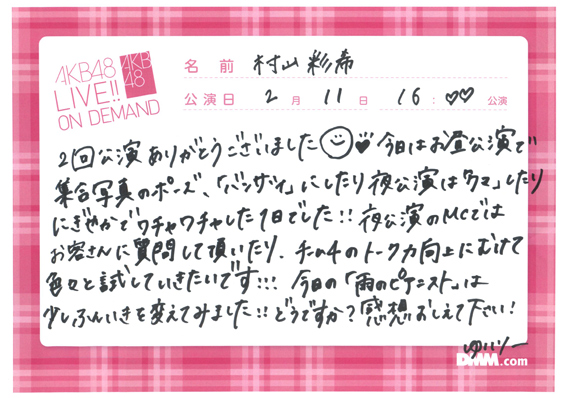 AKB48
LIVE!!
ON DEMAND
AKB
48
名前 村山彩希
公演日 2月11日 16:♡♡公演
2回公演ありがとうございました 今日はお昼公演で
集合写真のポーズ、「バンザイ」にしたり夜公演は「クマ」したり
にぎやかでワチャワチャした1日でした!! 夜公演のMCでは
お客さんに質問して頂いたり、チーム4のトーク力向上にむけて
色々と試していきたいです!!! 今日の「雨のピアニスト」は
少しふんいきを変えてみました!! どうですか?感想おしえて下さい!
ゆいりー
DMM.com